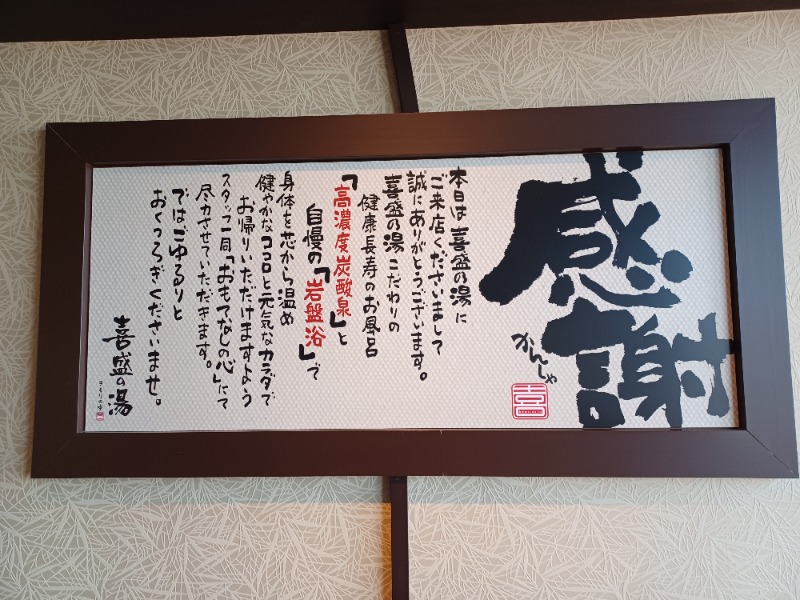 感謝
かんしゃ
喜
本日は 喜盛の湯に
ご来店くださいまして
誠にありがとうございます。
喜盛の湯 こだわりの
健康長寿のお風呂
「高濃度炭酸泉」と
自慢の「岩盤浴」で
身体を芯から温め
健やかなココロと元気なカラダで
お帰りいただけますよう
スタッフ一同「おもてなしの心」にて
尽力させていただきます。
ではごゆるりと
おくつろぎくださいませ。
喜盛の湯
きもりの湯